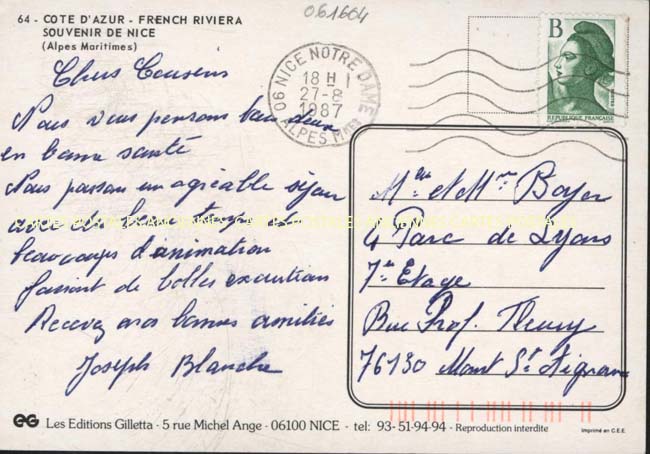 061604
64 - COTE D'AZUR - FRENCH RIVIERA
SOUVENIR DE NICE
(Alpes Maritimes)
06 NICE NOTRE DAME
18 H
27-8
1987
ALPES Mmes
B
REPUBLIQUE FRANÇAISE
Chers Cousens
Nous vous pensons tous deux
en bonne santé
Nous passons un agréable séjour
avec un beau temps et
beaucoups d'animation
faisant de belles excurtions
Recevez nos bonnes amitiés
Joseph Blanche
Mr et Mme Boyer
4 Parc de Lyons
7e Etage
Rue Prof. Fleury
76130 Mont St Aignan
Les Editions Gilletta - 5 rue Michel Ange - 06100 NICE - tel: 93-51-94-94 - Reproduction interdite
Imprimé en C.E.E.